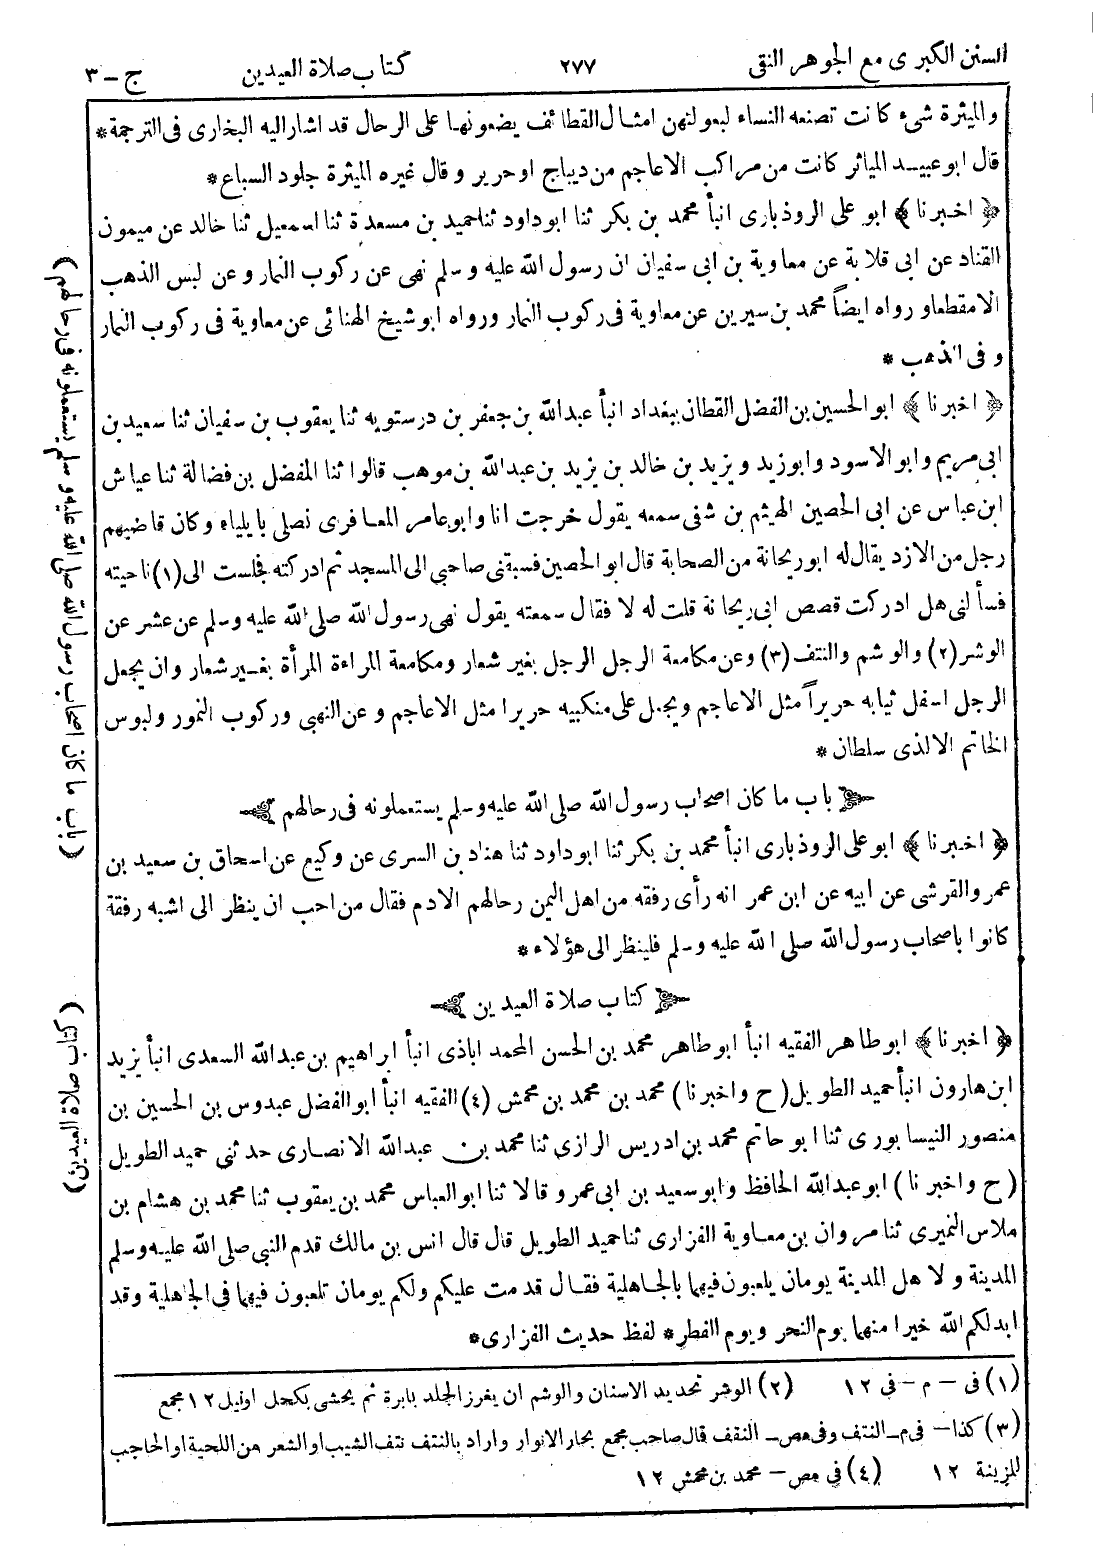 السنن الكبرى مع الجوهر النقى ٢٧٧ كتاب صلاة العيدين ج – ٣
والميثرة شىء كانت تصنعه النساء لبعولتهن امثال القطائف يضعونها على الرحال قد اشار اليه البخارى فى الترجمة*
قال ابو عبيد المياثر كانت من مراكب الاعاجم من ديباج او حرير وقال غيره الميثرة جلود السباع*
﴿ اخبرنا ﴾ ابو على الروذبارى انبأ محمد بن بكر ثنا ابو داود ثنا حميد بن مسعدة ثنا اسمعيل ثنا خالد عن ميمون
القناد عن ابى قلابة عن معاوية بن ابى سفيان ان رسول الله عليه وسلم نهى عن ركوب النمار وعن لبس الذهب
الا مقطعا و رواه ايضاً محمد بن سيرين عن معاوية فى ركوب النمار ورواه ابو شيخ الهنائى عن معاوية فى ركوب النمار
و فى الذهب *
﴿ اخبرنا ﴾ ابو الحسين بن الفضل القطان ببغداد انبأ عبدالله بن جعفر بن درستويه ثنا يعقوب بن سفيان ثنا سعيد بن
ابى مريم وابو الاسود وابو زيد ويزيد بن خالد بن يزيد بن عبدالله بن موهب قالوا ثنا المفضل بن فضالة ثنا عياش
ابن عباس عن ابى الحصين الهيثم بن شفى سمعه يقول خرجت انا وابو عامر المعافرى نصلى بايلياء وكان قاضيهم
رجل من الازد يقال له ابو ريحانة من الصحابة قال ابو الحصين فسبقنى صاحبى الى المسجد ثم ادركته فجلست الى (١) ناحيته
فسألنى هل ادركت قصص ابى ريحانة قلت له لا فقال سمعته يقول نهى رسول الله صلى الله عليه وسلم عن عشر عن
الوشر (٢) والوشم والنتف (٣) وعن مكامعة الرجل الرجل بغير شعار ومكامعة المراءة المرأة بغير شعار وان يجعل
الرجل اسفل ثيابه حريراً مثل الاعاجم ويجعل على منكبيه حريرا مثل الاعاجم وعن النهبى وركوب النمور ولبوس
الخاتم الا لذى سلطان *
باب ما كان اصحاب رسول الله صلى الله عليه وسلم يستعملونه فى رحالهم
﴿ اخبرنا ﴾ ابو على الروذبارى انبأ محمد بن بكر ثنا ابو داود ثنا هناد بن السرى عن وكيع عن اسحاق بن سعيد بن
عمرو القرشى عن ابيه عن ابن عمر انه رأى رفقه من اهل اليمن رحالهم الادم فقال من احب ان ينظر الى اشبه رفقة
كانوا باصحاب رسول الله صلى الله عليه وسلم فلينظر الى هؤلاء *
كتاب صلاة العيدين
﴿ اخبرنا ﴾ ابو طاهر الفقيه انبأ ابو طاهر محمد بن الحسن المحمد اباذى انبأ ابراهيم بن عبدالله السعدى انبأ يزيد
ابن هارون انبأ حميد الطويل ( ح واخبرنا ) محمد بن محمد بن محمش (٤) الفقيه انبأ ابو الفضل عبدوس بن الحسين بن
منصور النيسابورى ثنا ابو حاتم محمد بن ادريس الرازى ثنا محمد بن عبدالله الانصارى حدثنى حميد الطويل
( ح واخبرنا ) ابو عبدالله الحافظ وابو سعيد بن ابى عمرو قالا ثنا ابو العباس محمد بن يعقوب ثنا محمد بن هشام بن
ملاس النميرى ثنا مروان بن معاوية الفزارى ثنا حميد الطويل قال قال انس بن مالك قدم النبى صلى الله عليه وسلم
المدينة ولاهل المدينة يومان يلعبون فيهما بالجاهلية فقال قدمت عليكم ولكم يومان تلعبون فيهما فى الجاهلية وقد
ابدلكم الله خيرا منهما يوم النحر ويوم الفطر* لفظ حديث الفزارى*
(١) فى – م – فى ١٢ (٢) الوشر تحديد الاسنان والوشم ان يغرز الجلد بابرة ثم يحشى بكحل او نيل ١٢ مجمع
(٣) كذا – فى م – النتف وفى مص – النقف قال صاحب مجمع بحار الانوار واراد بالنتف نتف الشيب او الشعر من اللحية او الحاجب
للزينة ١٢ (٤) فى مص – محمد بن محمش ١٢
( باب ما كان اصحاب رسول الله صلى الله عليه وسلم يستعملونه فى رحالهم )
( كتاب صلاة العيدين )